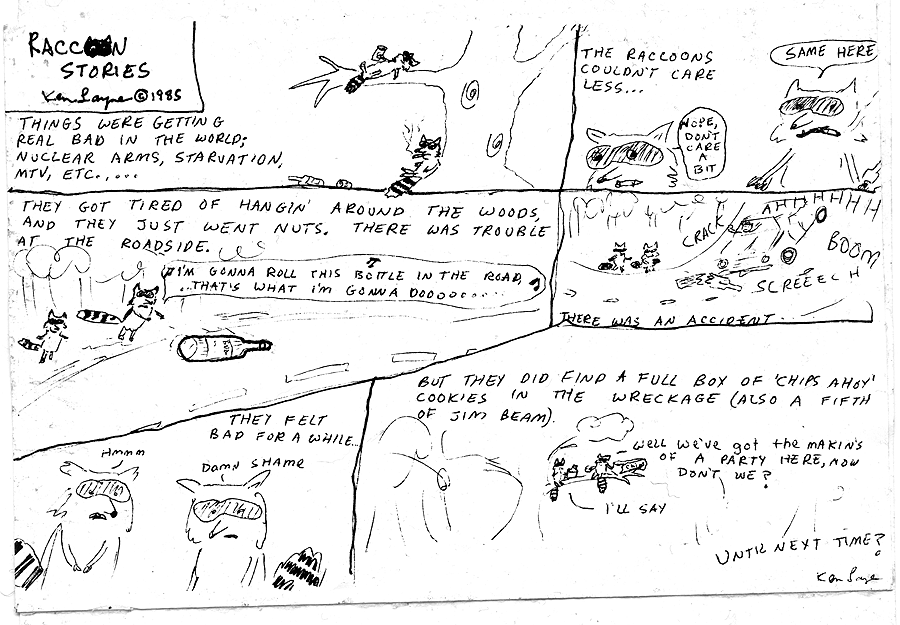 RACCOON
STORIES
Ken Layne © 1985
THINGS WERE GETTING
REAL BAD IN THE WORLD;
NUCLEAR ARMS, STARVATION,
MTV, ETC.,...
THE RACCOONS
COULDN'T CARE
LESS...
NOPE,
DON'T
CARE
A
BIT
SAME HERE
THEY GOT TIRED OF HANGIN' AROUND THE WOODS,
AND THEY JUST WENT NUTS. THERE WAS TROUBLE
AT THE ROADSIDE.
I'M GONNA ROLL THIS BOTTLE IN THE ROAD,
...THAT'S WHAT I'M GONNA DOOOOOO...
CRACK
AHHHHHHH
BOOM
SCREEECH
THERE WAS AN ACCIDENT...
THEY FELT
BAD FOR A WHILE...
HMMM
DAMN SHAME
BUT THEY DID FIND A FULL BOX OF 'CHIPS AHOY'
COOKIES IN THE WRECKAGE (ALSO A FIFTH
OF JIM BEAM).
WELL WE'VE GOT THE MAKIN'S
OF A PARTY HERE, NOW
DON'T WE?
I'LL SAY
UNTIL NEXT TIME?
Ken Layne